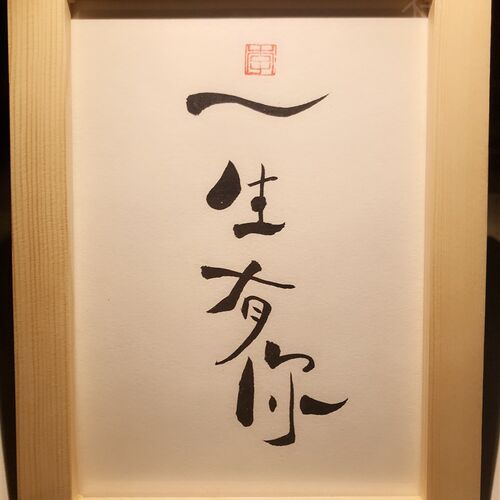 一生有你